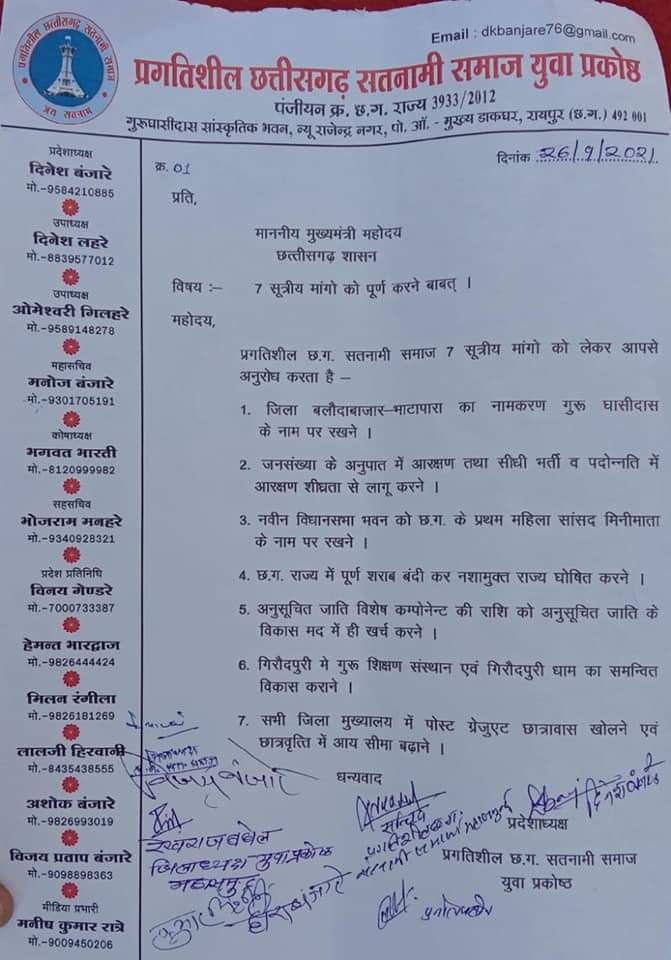 प्रगतिशील छत्तीसगढ़ सतनामी समाज
जय सतनाम
Email : dkbanjare76@gmail.com
प्रगतिशील छत्तीसगढ़ सतनामी समाज युवा प्रकोष्ठ
पंजीयन क्र. छ.ग. राज्य 3933/2012
गुरुघासीदास सांस्कृतिक भवन, न्यू राजेन्द्र नगर, पो. ऑ. - मुख्य डाकघर, रायपुर (छ.ग.) 492 001
प्रदेशाध्यक्ष
दिनेश बंजारे
मो.-9584210885
उपाध्यक्ष
दिनेश लहरे
मो.-8839577012
उपाध्यक्ष
ओमेश्वरी गिलहरे
मो.-9589148278
महासचिव
मनोज बंजारे
मो.-9301705191
कोषाध्यक्ष
भगवत भारती
मो.-8120999982
सहसचिव
भोजराम मनहरे
मो.-9340928321
प्रदेश प्रतिनिधि
विनय गेण्डरे
मो.-7000733387
हेमन्त भारद्वाज
मो.-9826444424
मिलन रंगीला
मो.-9826181269
लालजी हिरवानी
मो.-8435438555
अशोक बंजारे
मो.-9826993019
विजय प्रताप बंजारे
मो.-9098898363
मीडिया प्रभारी
मनीष कुमार रात्रे
मो.-9009450206
क्र. 01
दिनांक 26/9/2021
प्रति,
माननीय मुख्यमंत्री महोदय
छत्तीसगढ़ शासन
विषय :– 7 सूत्रीय मांगो को पूर्ण करने बाबत् ।
महोदय,
प्रगतिशील छ.ग. सतनामी समाज 7 सूत्रीय मांगो को लेकर आपसे
अनुरोध करता है –
1. जिला बलौदाबाजार–भाटापारा का नामकरण गुरू घासीदास
के नाम पर रखने ।
2. जनसंख्या के अनुपात में आरक्षण तथा सीधी भर्ती व पदोन्नति में
आरक्षण शीघ्रता से लागू करने ।
3. नवीन विधानसभा भवन को छ.ग. के प्रथम महिला सांसद मिनीमाता
के नाम पर रखने ।
4. छ.ग. राज्य में पूर्ण शराब बंदी कर नशामुक्त राज्य घोषित करने ।
5. अनुसूचित जाति विशेष कम्पोनेन्ट की राशि को अनुसूचित जाति के
विकास मद में ही खर्च करने ।
6. गिरौदपुरी मे गुरू शिक्षण संस्थान एवं गिरौदपुरी धाम का समन्वित
विकास कराने ।
7. सभी जिला मुख्यालय में पोस्ट ग्रेजुएट छात्रावास खोलने एवं
छात्रवृत्ति में आय सीमा बढ़ाने ।
धन्यवाद
प्रदेशाध्यक्ष
प्रगतिशील छ.ग. सतनामी समाज
युवा प्रकोष्ठ
जिलाध्यक्ष युवा प्रकोष्ठ